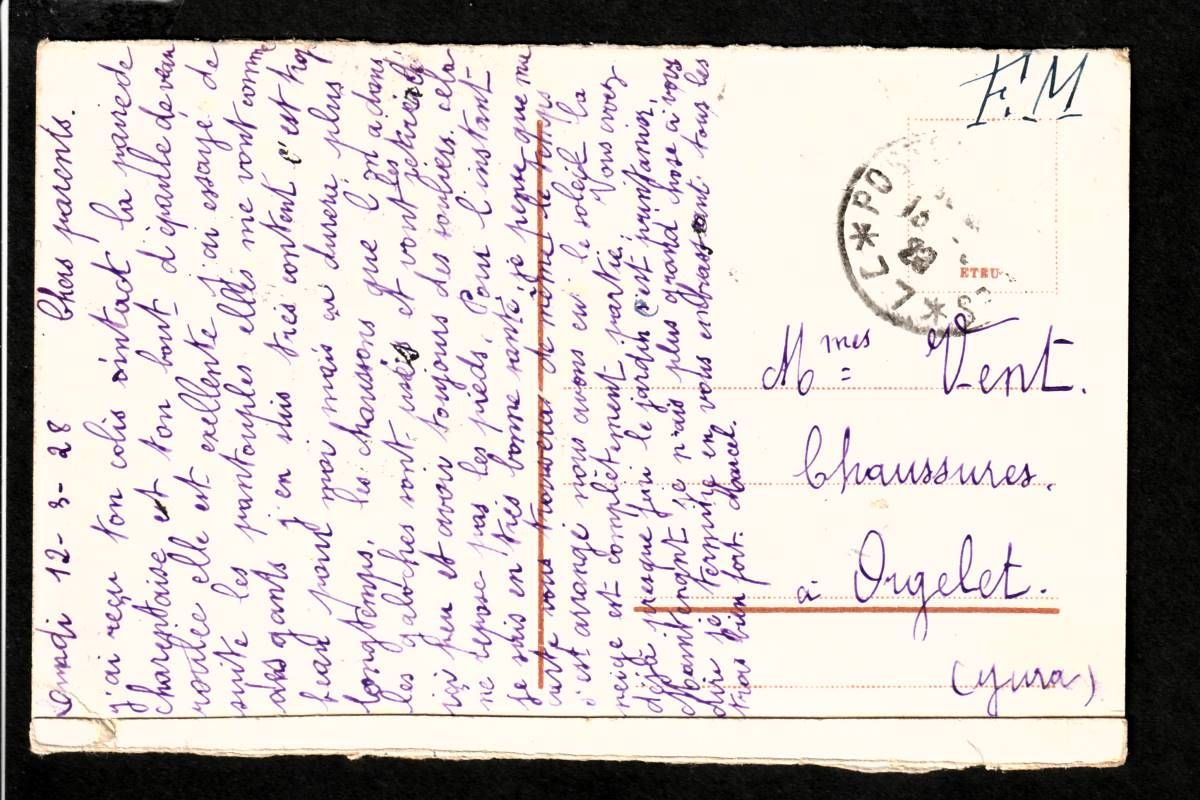 Lundi 12-3-28 Chers parents.
j'ai reçu ton colis intact la paire de
charentaise et ton bout d'épaule de veau
roulée elle est exellente j'ai essayé de
suite les pantoufles elles me vont comme
des gants j'en suis très content c'est trop
beau pour moi mais ça durera plus
longtemps. les chaussons que l'on a dans
les galoches sont usés et vont les
ici peu et avoir toujours des souliers cela
ne repose pas les pieds. Pour l'instant
je suis en très bonne santé, je pense que ma
carte vous trouvera de même le temps
s'est arrangé nous avons eu le soleil la
neige est complètement partie. Vous avez
déjà presque fini le jardin c'est printanier,
Maintenant je n'ais plus grand chose à vous
dire je termine en vous embrassant tous les
trois bien fort. Marcel.
F.M
LL * PO
16
ETRU
Mmes Vent.
Chaussures.
à Orgelet.
(Jura)